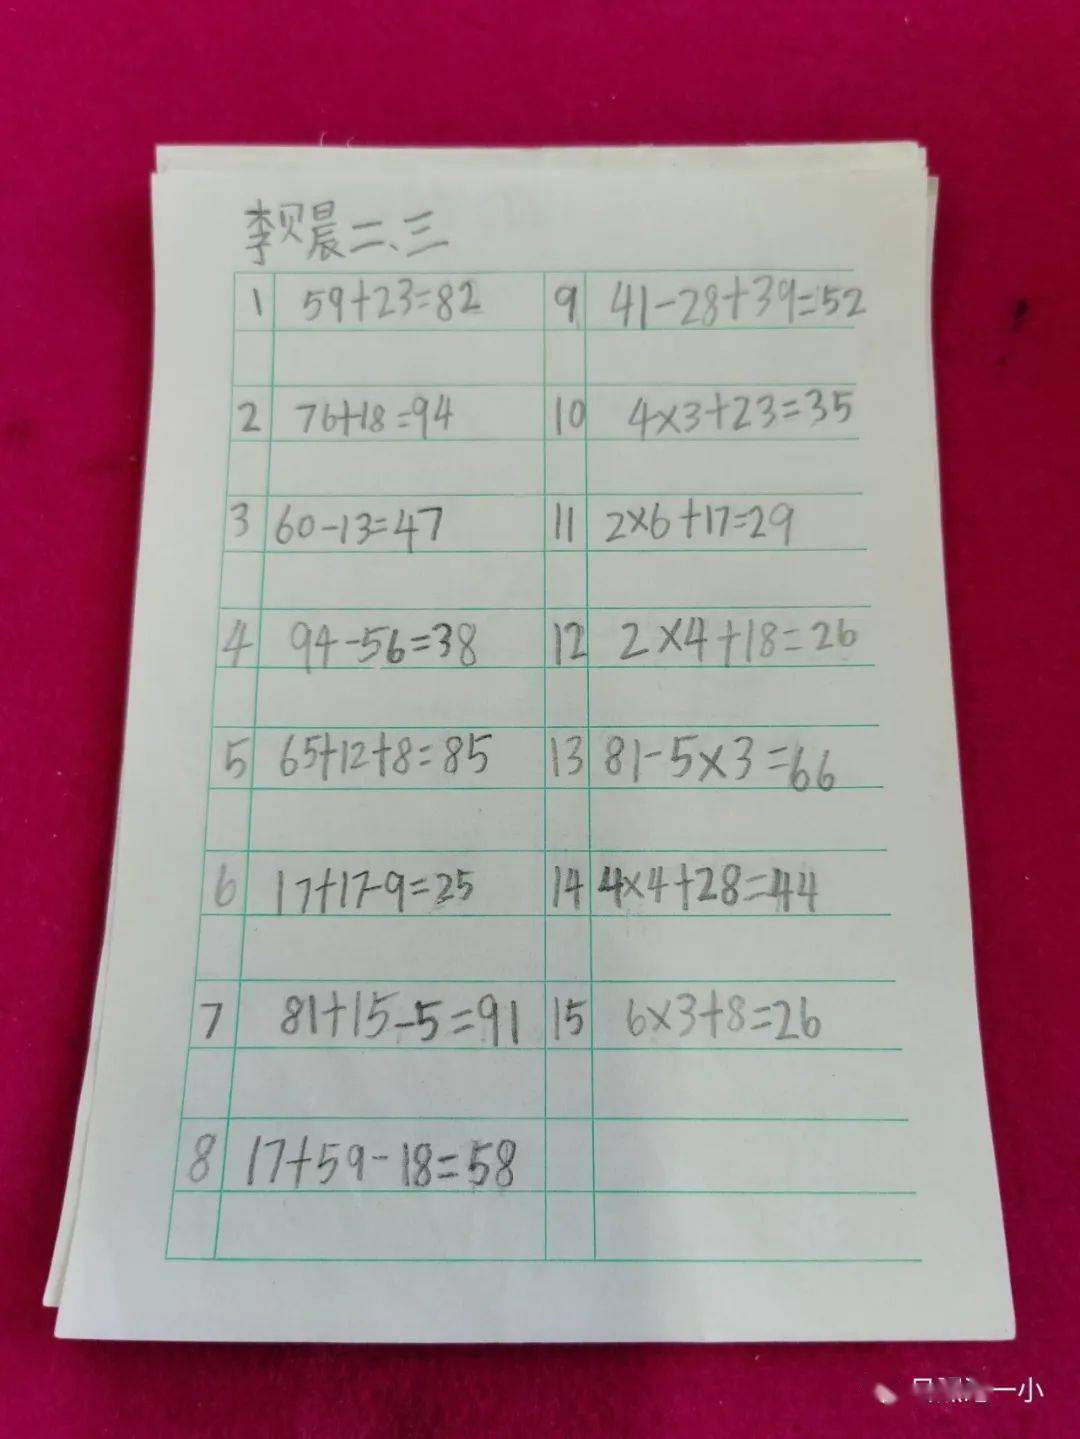 李贝晨二、三
1 59+23=82
2 76+18=94
3 60-13=47
4 94-56=38
5 65+12+8=85
6 17+17-9=25
7 81+15-5=91
8 17+59-18=58
9 41-28+39=52
10 4×3+23=35
11 2×6+17=29
12 2×4+18=26
13 81-5×3=66
14 4×4+28=44
15 6×3+8=26
一小